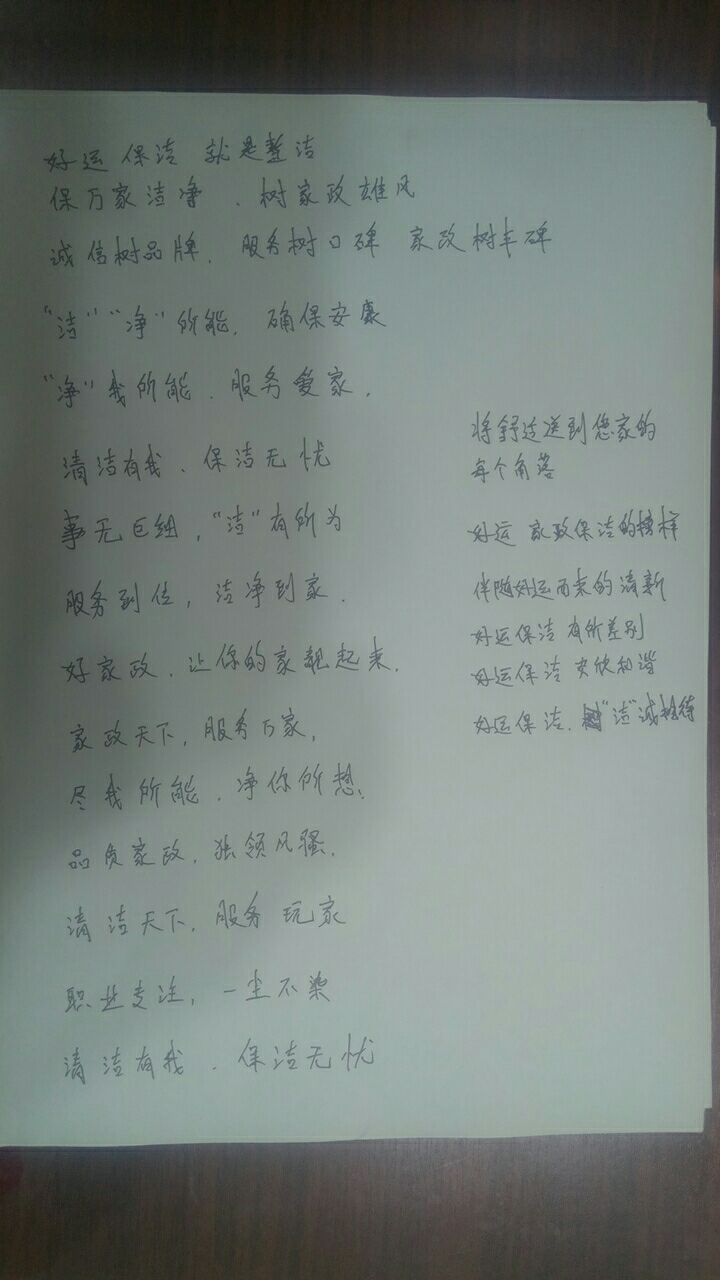 好运保洁 就是整洁
保万家洁净、树家政雄风
诚信树品牌、服务树口碑 家政树丰碑
“洁”“净”所能,确保安康
“净”我所能、服务爱家,
清洁有我、保洁无忧
事无巨细,“洁”有所为
服务到位,洁净到家、
好家政、让你的家靓起来、
家政天下,服务万家,
尽我所能、净你所想、
品质家政、独领风骚、
清洁天下、服务玩家
职业专注,一尘不染
清洁有我、保洁无忧
将舒适送到您家的
每个角落
好运 家政保洁的榜样
伴随好运而来的清新
好运保洁 有所差别
好运保洁 欣和谐
好运保洁、“洁”诚相待